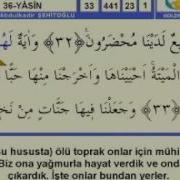 36-YÂSÎN 33 441 23 1
Abdulkadir ŞEHİTOĞLU
لَدَيْنَا مُحْضَرُونَ ﴿٣٢﴾ وَاٰيَةٌ
الْمَيْتَةُ اَحْيَيْنَاهَا وَاَخْرَجْنَا مِنْهَا حَبًّا
﴿٣٣﴾ وَجَعَلْنَا فِيهَا جَنَّاتٍ مِنْ
su hususta) ölü toprak onlar için mühi
Biz ona yağmurla hayat verdik ve onda
çıkardık. İşte onlar bundan yerler.